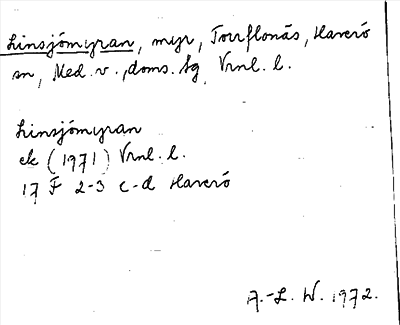 Linsjömyran, myr, Torrflonäs, Haverö
sn, Med. v., doms. sg, Vrnl. l.
Linsjömyran
ek (1971) Vrnl. l.
17 F 2-3 c-d Haverö
A.-L. W. 1972.